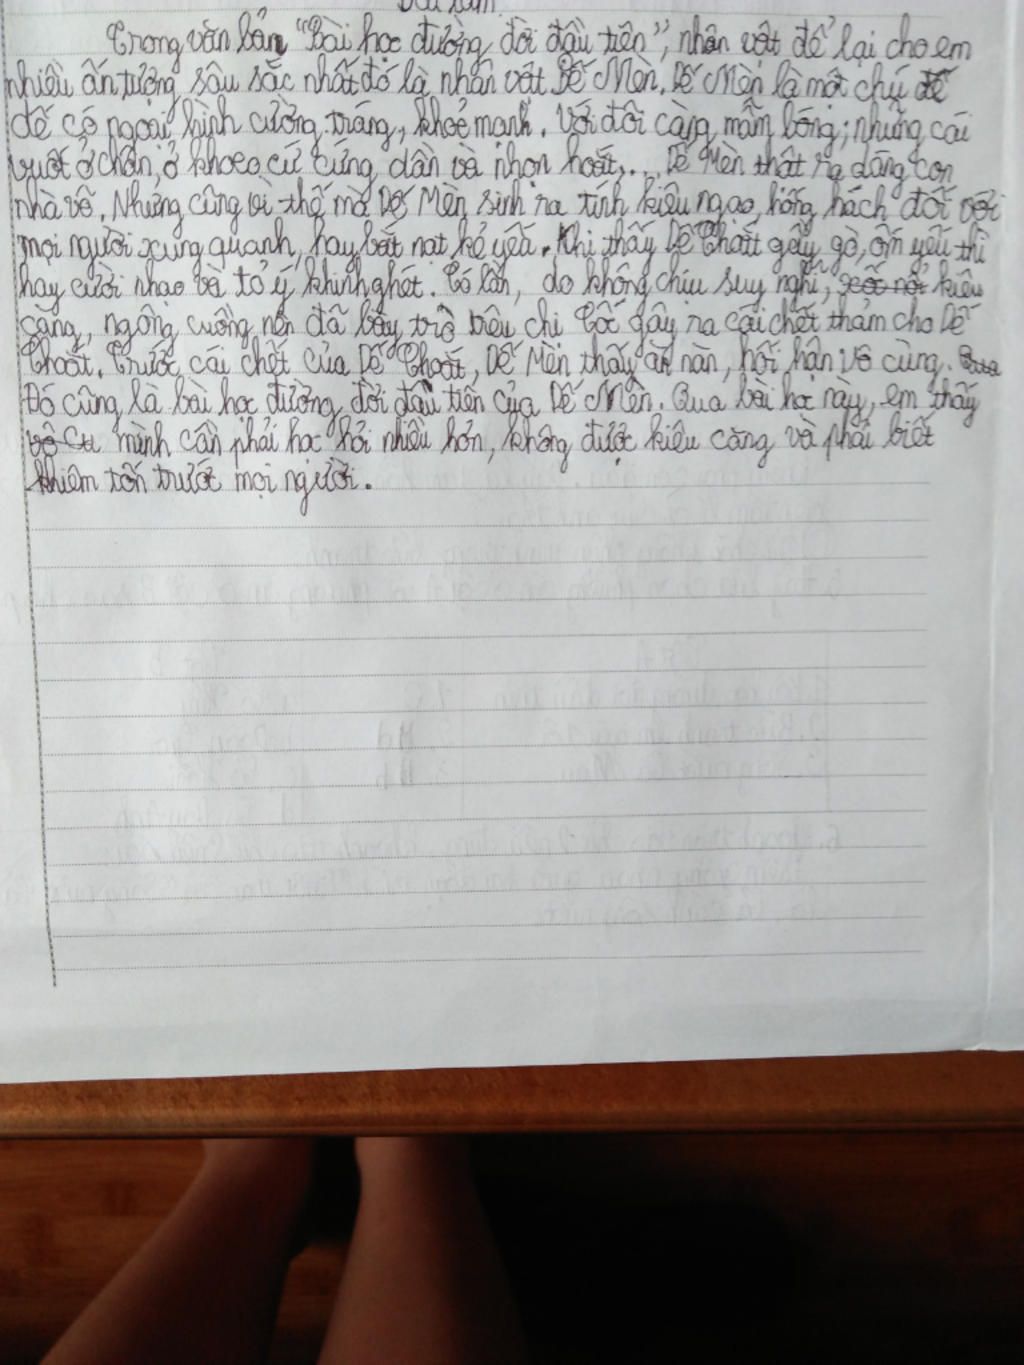 Bài làm
Trong văn bản "Bài học đường đời đầu tiên", nhân vật để lại cho em
nhiều ấn tượng sâu sắc nhất đó là nhân vật Dế Mèn. Dế Mèn là một chú
dế có ngoại hình cường tráng, khoẻ mạnh. Với đôi càng mẫm bóng; những cái
vuốt ở chân, ở khoeo cứ cứng dần và nhọn hoắt,... Dế Mèn thật ra dáng con
nhà võ. Nhưng cũng vì thế mà Dế Mèn sinh ra tính kiêu ngạo, hống hách đối với
mọi người xung quanh, hay bắt nạt kẻ yếu. Khi thấy Dế Choắt gầy gò, ốm yếu thì
hay cười nhạo và tỏ ý khinh ghét. Có lần, do không chịu suy nghĩ, kiêu
căng, ngông cuồng nên đã bày trò trêu chị Cốc gây ra cái chết thảm cho Dế
Choắt. Trước cái chết của Dế Choắt, Dế Mèn thấy ăn năn, hối hận vô cùng.
Đó cũng là bài học đường đời đầu tiên của Dế Mèn. Qua bài học này, em thấy
mình cần phải học hỏi nhiều hơn, không được kiêu căng và phải biết
khiêm tốn trước mọi người.